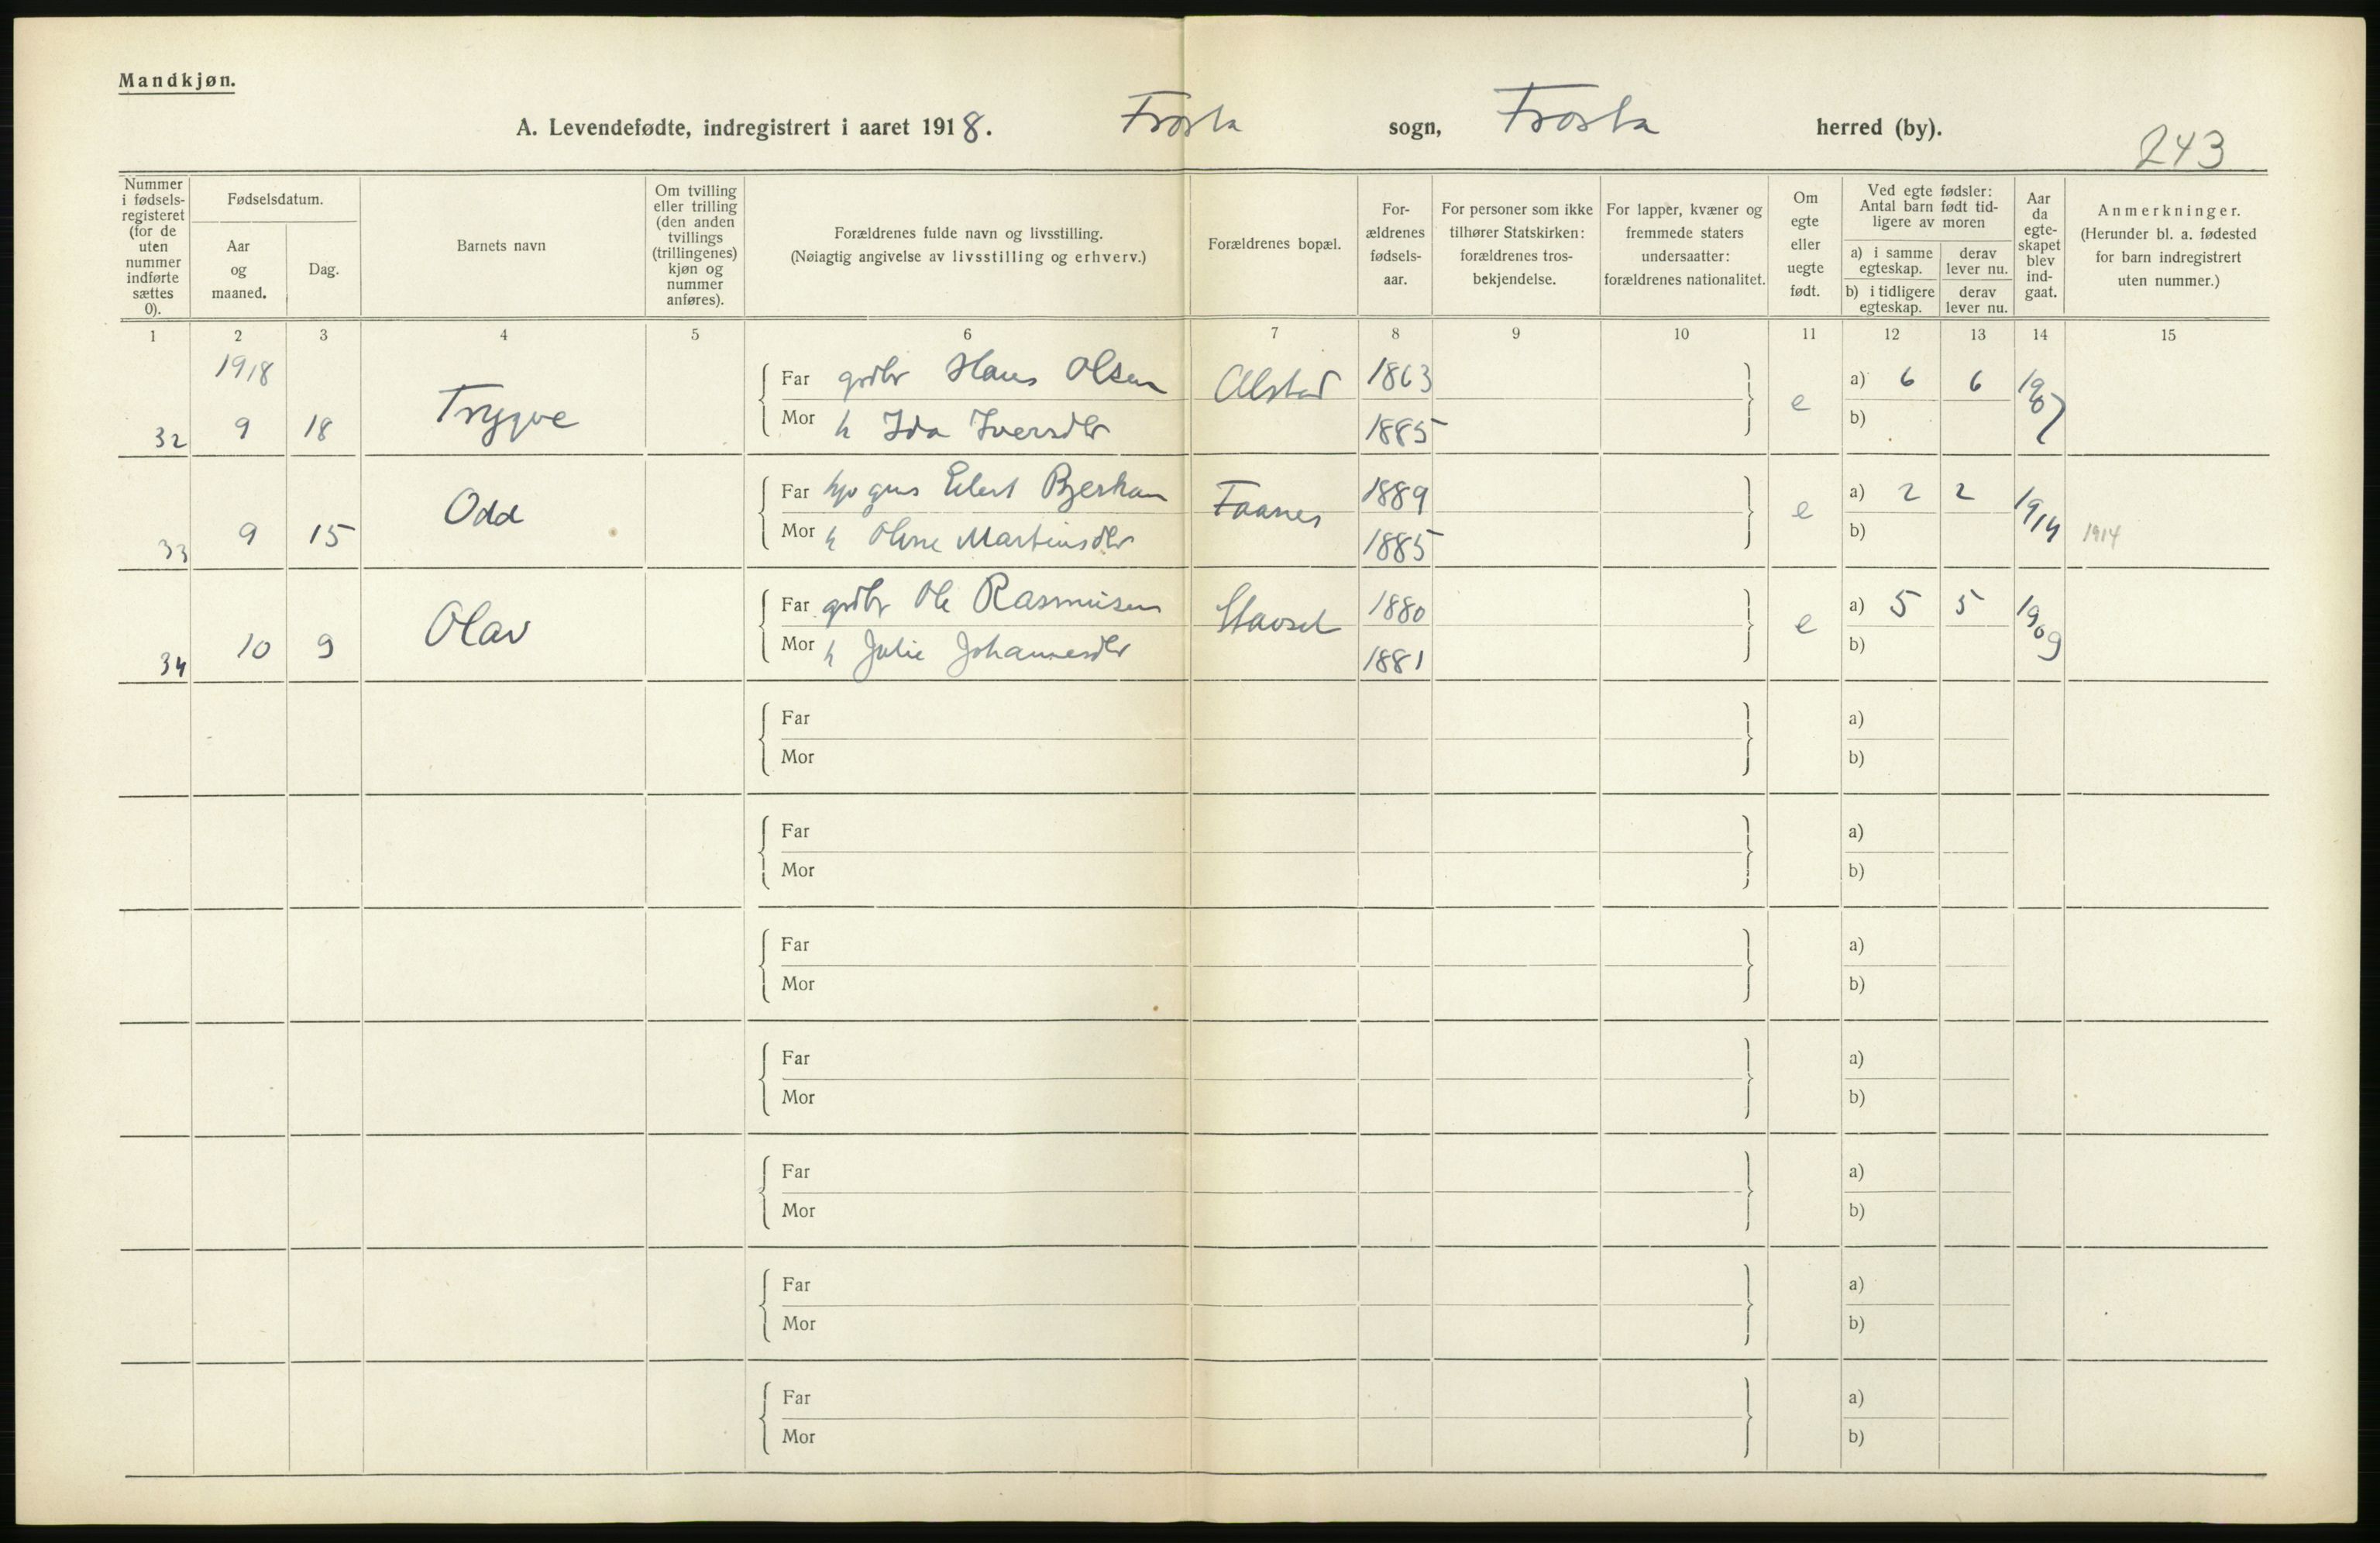 Mandkjøn.
A. Levendefødte, indregistrert i aaret 1918. Frosta sogn, Frosta herred (by).
243
Nummer i fødselsregisteret (for de uten nummer indførte sættes 0).
Fødselsdatum.
Aar og maaned.
Dag.
Barnets navn
Om tvilling eller trilling (den anden tvillings (trillingenes) kjøn og nummer anføres).
Forældrenes fulde navn og livsstilling.
(Nøiagtig angivelse av livsstilling og erhverv.)
Forældrenes bopæl.
Forældrenes fødselsaar.
For personer som ikke tilhører Statskirken: forældrenes trosbekjendelse.
For lapper, kvæner og fremmede staters undersaatter: forældrenes nationalitet.
Om egte eller uegte født.
Ved egte fødsler: Antal barn født tidligere av moren
a) i samme egteskap.
derav lever nu.
b) i tidligere egteskap.
derav lever nu.
Aar da egteskapet blev indgaat.
Anmerkninger.
(Herunder bl. a. fødested for barn indregistrert uten nummer.)
1 2 3 4 5 6 7 8 9 10 11 12 13 14 15
1918
32 9 18 Trygve
Far grdbr Hans Olsen Alstad 1863 e a) 6 6 1907
Mor h Ida Iversdtr 1885 b)
33 9 15 Odd
Far Eilert Bjerkan Faanes 1889 e a) 2 2 1914
Mor h Oline Martinsdtr 1885 b) 1914
34 10 9 Olav
Far grdbr Ole Rasmusen 1880 e a) 5 5 1909
Mor h Julie Johannesdtr 1881 b)
Far a)
Mor b)
Far a)
Mor b)
Far a)
Mor b)
Far a)
Mor b)
Far a)
Mor b)
Far a)
Mor b)
Far a)
Mor b)